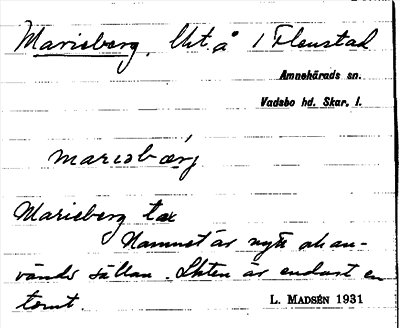 Marieberg. Lht. å 1 Flenstad
Amnehärads sn.
Vadsbo hd. Skar. l.
marıɔbærg
Marieberg tax
Namnet är nytt och an-
vändes sällan. Lhten är endast en
tomt. L. MADSÉN 1931